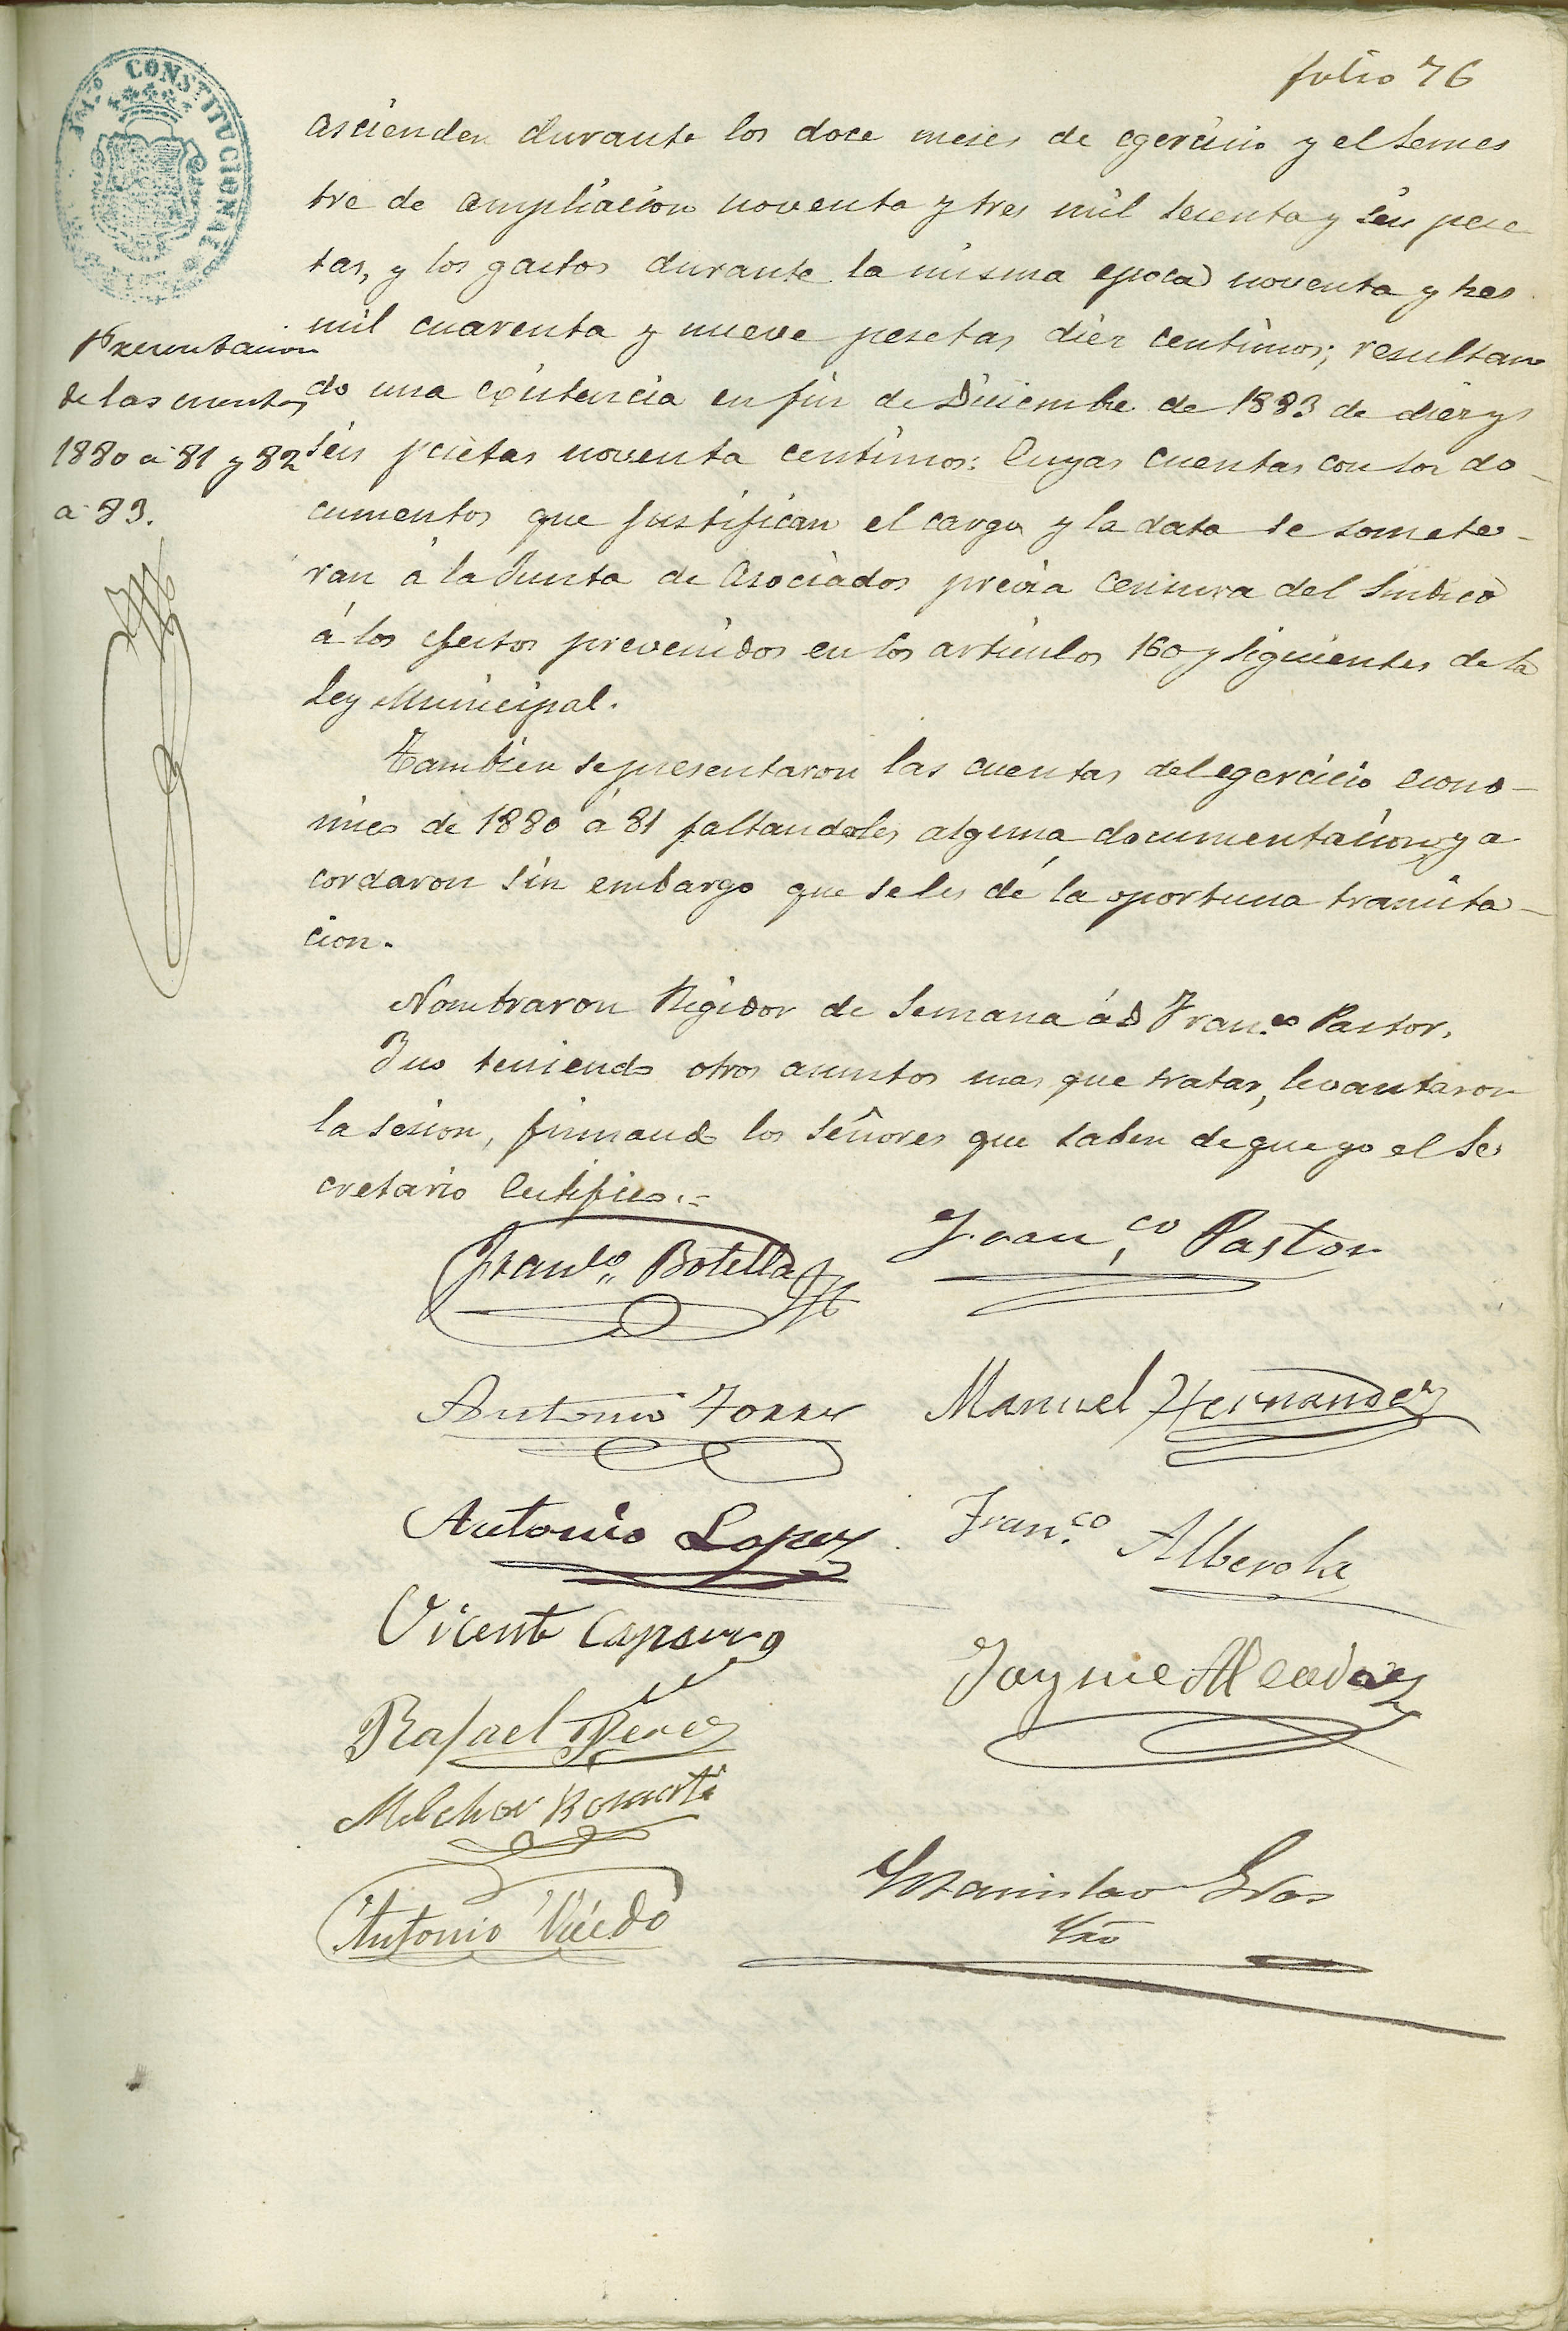 folio 76
CONSTITUCIONAL
ascienden durante los doce meses de egercicio y el semes
tre de ampliacion noventa y tres mil sesenta y seis pese
tas, y los gastos durante la misma epoca noventa y tres
mil cuarenta y nueve pesetas diez centimos; resultan
do una existencia en fin de Diciembre de 1883 de diez y
seis pesetas noventa centimos: Cuyas cuentas con los do-
cumentos que justifican el cargo y la data se somete-
ran á la Junta de Asociados previa censura del Sindico
á los efectos prevenidos en los articulos 160 y siguientes de la
Ley Municipal.
Presentacion
de las cuentas
1880 a 81 y 82
a 83.
Tambien se presentaron las cuentas del egercicio econo-
mico de 1880 á 81 faltandoles alguna documentacion, y a
cordaron sin embargo que se les dé la oportuna tramita-
cion.
Nombraron Regidor de Semana á D Fran.co Pastor.
Y no teniendo otros asuntos mas que tratar, levantaron
la sesion, firmando los Señores que saben de que yo el Se
cretario Certifico.=
Fran.co Botella
Fran.co Pastor
Antonio Torres
Manuel Hernandez
Antonio Lopez
Fran.co Alberola
Vicente
Jayme
Rafael Perez
Melchor
Antonio
Estanislao
Srio